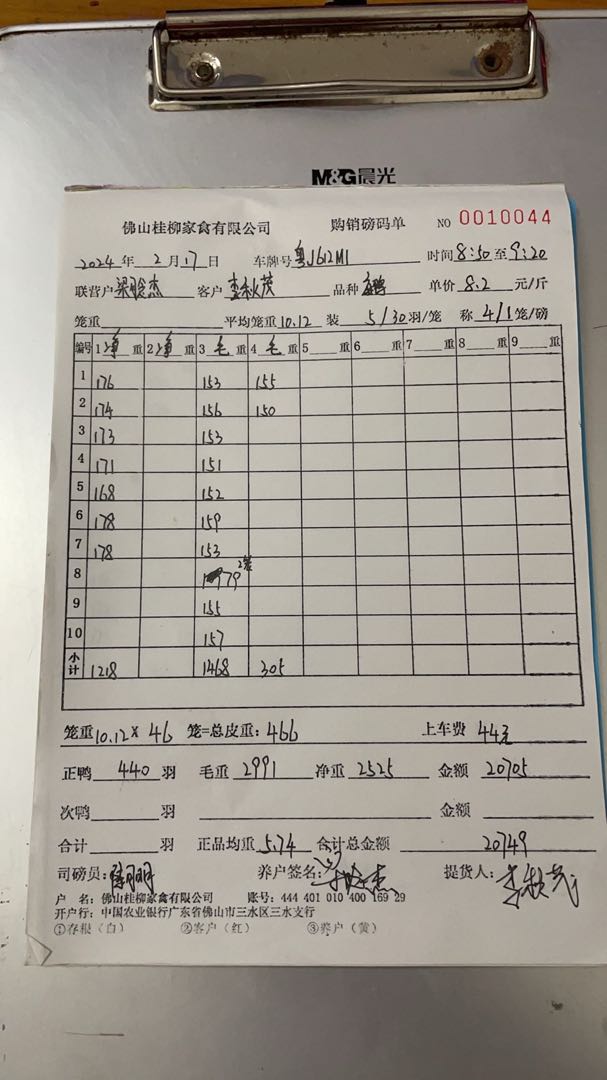 M&G晨光
佛山桂柳家禽有限公司 购销磅码单 NO 0010044
2024年2月17日 车牌号粤J612M1 时间8:50至9:20
联营户梁聪杰 客户李秋茂 品种 单价8.2元/斤
笼重 平均笼重10.12 装 5/30羽/笼 称 4/1笼/磅
编号 1净重 2净重 3毛重 4毛重 5重 6重 7重 8重 9重
1 176 153 155
2 174 156 150
3 173 153
4 171 151
5 168 152
6 178 159
7 178 153
8 79 2笼
9 155
10 157
小计 1218 1468 305
笼重10.12×46笼=总皮重:466 上车费 44元
正鸭 440羽 毛重2991 净重2525 金额20705
次鸭 羽 金额
合计 羽 正品均重5.74 合计总金额 20749
司磅员: 养户签名: 提货人:李秋茂
户 名:佛山桂柳家禽有限公司 账号:444 401 010 400 169 29
开户行:中国农业银行广东省佛山市三水区三水支行
①存根(白) ②客户(红) ③养户(黄)